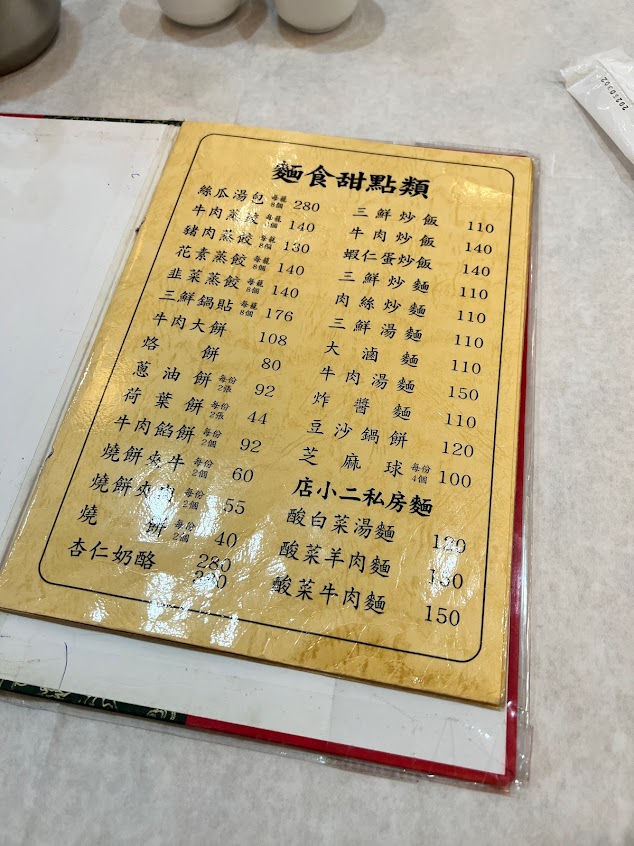 麵食甜點類
絲瓜湯包 每籠8個 280
牛肉蒸餃 每籠8個 140
豬肉蒸餃 每籠8個 130
花素蒸餃 每籠8個 140
韭菜蒸餃 每籠8個 140
三鮮鍋貼 每籠8個 176
牛肉大餅 108
烙餅 80
蔥油餅 每份2張 92
荷葉餅 每份2張 44
牛肉餡餅 每份2個 92
燒餅夾牛 每份2個 60
燒餅夾肉 每份2個 55
燒餅 每份2個 40
杏仁奶酪 280
三鮮炒飯 110
牛肉炒飯 140
蝦仁蛋炒飯 140
三鮮炒麵 110
肉絲炒麵 110
三鮮湯麵 110
大滷麵 110
牛肉湯麵 150
炸醬麵 110
豆沙鍋餅 120
芝麻球 每份4個 100
店小二私房麵
酸白菜湯麵 120
酸菜羊肉麵
酸菜牛肉麵 150